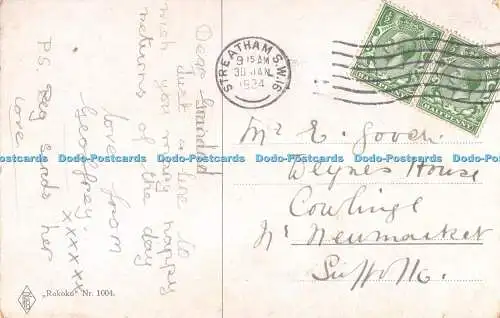 Dear Grandad
Just a line to
wish you many happy
returns of the day
love from
Geoffrey.
xxxxxx
P.S. Peg sends her
love
STREATHAM S.W.16
9 15 AM
30 JAN
1934
HALFPENNY
HALFPENNY
Mr E. Gooch
House
Cowlinge
Nr Newmarket
Suffolk.
„Rokoko" Nr. 1004.
Dodo-Postcards Dodo-Postcards Dodo-Postcards Dodo-Postcards Dodo-Postcards